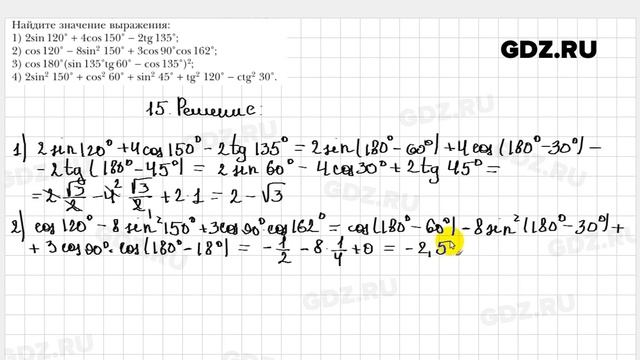 Найдите значение выражения:
1) 2sin 120° + 4cos 150° − 2tg 135°;
2) cos 120° − 8sin² 150° + 3cos 90°cos 162°;
3) cos 180°(sin 135°tg 60° − cos 135°)²;
4) 2sin² 150° + cos² 60° + sin² 45° + tg² 120° − ctg² 30°.
GDZ.RU
15. Решение:
1) 2 sin120° + 4 cos 150° − 2 tg 135° = 2 sin(180° − 60°) + 4 cos (180° − 30°) −
− 2 tg (180° − 45°) = 2 sin 60° − 4 cos 30° + 2 tg 45° =
= 2 · √3/2 − 4 · √3/2 + 2 · 1 = 2 − √3
2) cos 120° − 8 sin² 150° + 3 cos 90° · cos 162° = cos(180° − 60°) − 8 sin² (180° − 30°) +
+ 3 cos 90° · cos (180° − 18°) = − 1/2 − 8 · 1/4 + 0 = − 2,5